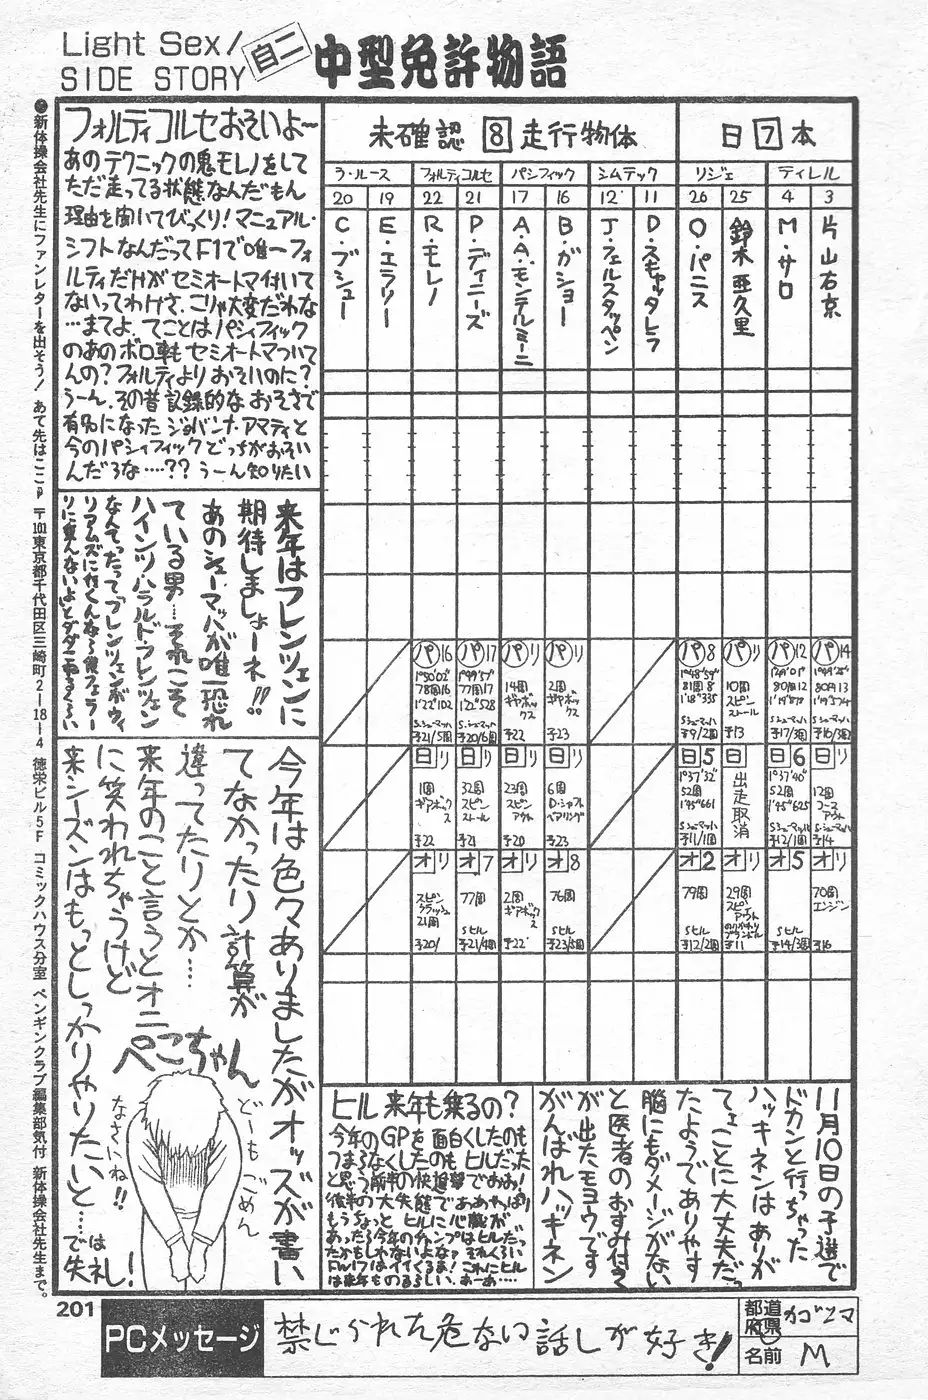 Light Sex/
SIDE STORY
自二
中型免許物語
●新体操会社先生にファンレターを出そう! あて先はここ 〒101東京都千代田区三崎町2-18-4 徳栄ビル5F コミックハウス分室 ペンギンクラブ編集部気付 新体操会社先生まで。
フォルティコルセおそいよ〜
あのテクニックの鬼モレノをして
ただ走ってる状態なんだもん
理由を聞いてびっくり!マニュアル・
シフトなんだってF1で唯一フォ
ルティだけがセミオートマ付いて
ないってわけさ、こりゃ大変だわな
…まてよ、てことはパシフィック
のあのボロ車もセミオートマついて
んの?フォルティよりおそいのに?
うーん、その昔記録的なおそさで
有名になったジョバンナ・アマティと
今のパシィフィックどっちがおそい
んだろな……??うーん知りたい
未確認 8 走行物体
日 7 本
ラ・ルース
フォルティコルセ
パシフィック
シムテック
リジェ
ティレル
20 19 22 21 17 16 12 11 26 25 4 3
C・ブシュー
E・エラリー
R・モレノ
P・ディニーズ
A・A・モンテルミーニ
B・ガショー
J・フェルスタッペン
D・スキャッタレラ
O・パニス
鈴木亜久里
M・サロ
片山右京
パ16
1°50'02"
78周16
1'22"102
S.シューマッハ
予21/5周
パ17
1°49'57"
77周17
1'22"528
S.シューマッハ
予20/6周
パリ
14周
ギヤボックス
予22
パリ
2周
ギヤボックス
予23
パ8
1°48'59"
81周8
1'18"335
S.シューマッハ
予9/2周
パリ
10周
スピン
ストール
予13
パ12
1°49'01"
80周12
1'19"879
S.シューマッハ
予17/3周
パ14
1°49'25"
80周13
1'19"574
S.シューマッハ
予16/3周
日リ
1周
ギアボックス
予22
日リ
32周
スピン
ストール
予21
日リ
23周
スピン
アウト
予20
日リ
6周
D・シャフト
ベアリング
予23
日5
1°37'32"
52周
1'45"661
S.シューマッハ
予11/1周
日リ
出走取消
日6
1°37'40"
52周
1'45"625
S.シューマッハ
予12/1周
日リ
12周
コース
アウト
予14
オリ
スピン
クラッシュ
21周
予20/
オ7
77周
S.ヒル
予21/4周
オリ
2周
ギアボックス
予22
オ8
76周
S.ヒル
予23/5周
オ2
79周
S.ヒル
予12/2周
オリ
29周
スピン
アウト
予11
オ5
S.ヒル
予14/3周
オリ
70周
エンジン
予16
来年はフレンツェンに
期待しましょーネ!!
あのシューマッハが唯一恐れ
ている男…それこそ
ハインツ・ハラルド・フレンツェン
なんてったって「フレンツェンがウィ
リアムズに行くんなら僕フェラー
リに乗んないよ」と
今年は色々ありましたがオッズが書い
てなかったり計算が
違ってたりとか……
来年のこと言うとオニ
に笑われちゃうけど
来シーズンはもっとしっかりやりたいと…では
失礼!
ぺこちゃん
どーもごめん
なさいね!!
ヒル 来年も乗るの?
今年のGPを面白くしたのも
つまらなくしたのもヒルだった
と思う前半の快進撃でおお!
後半の大失態でああやっぱり
もうちょっとヒルに心臓が
あったら今年のチャンプはヒルだっ
たかもしゃないよなァそれくらい
FW17はイイくるま!これにヒル
は来年ものるらしい、あーあ……
11月10日の予選で
ドカンと行っちゃった
ハッキネンはありが
てェことに大丈夫だっ
たようでありやす
脳にもダメージがない
と医者のおすみ付き
が出たモヨウです
がんばれハッキネン
201
PCメッセージ
禁じられた危ない話しが好き!
都道府県
カゴシマ
名前
M